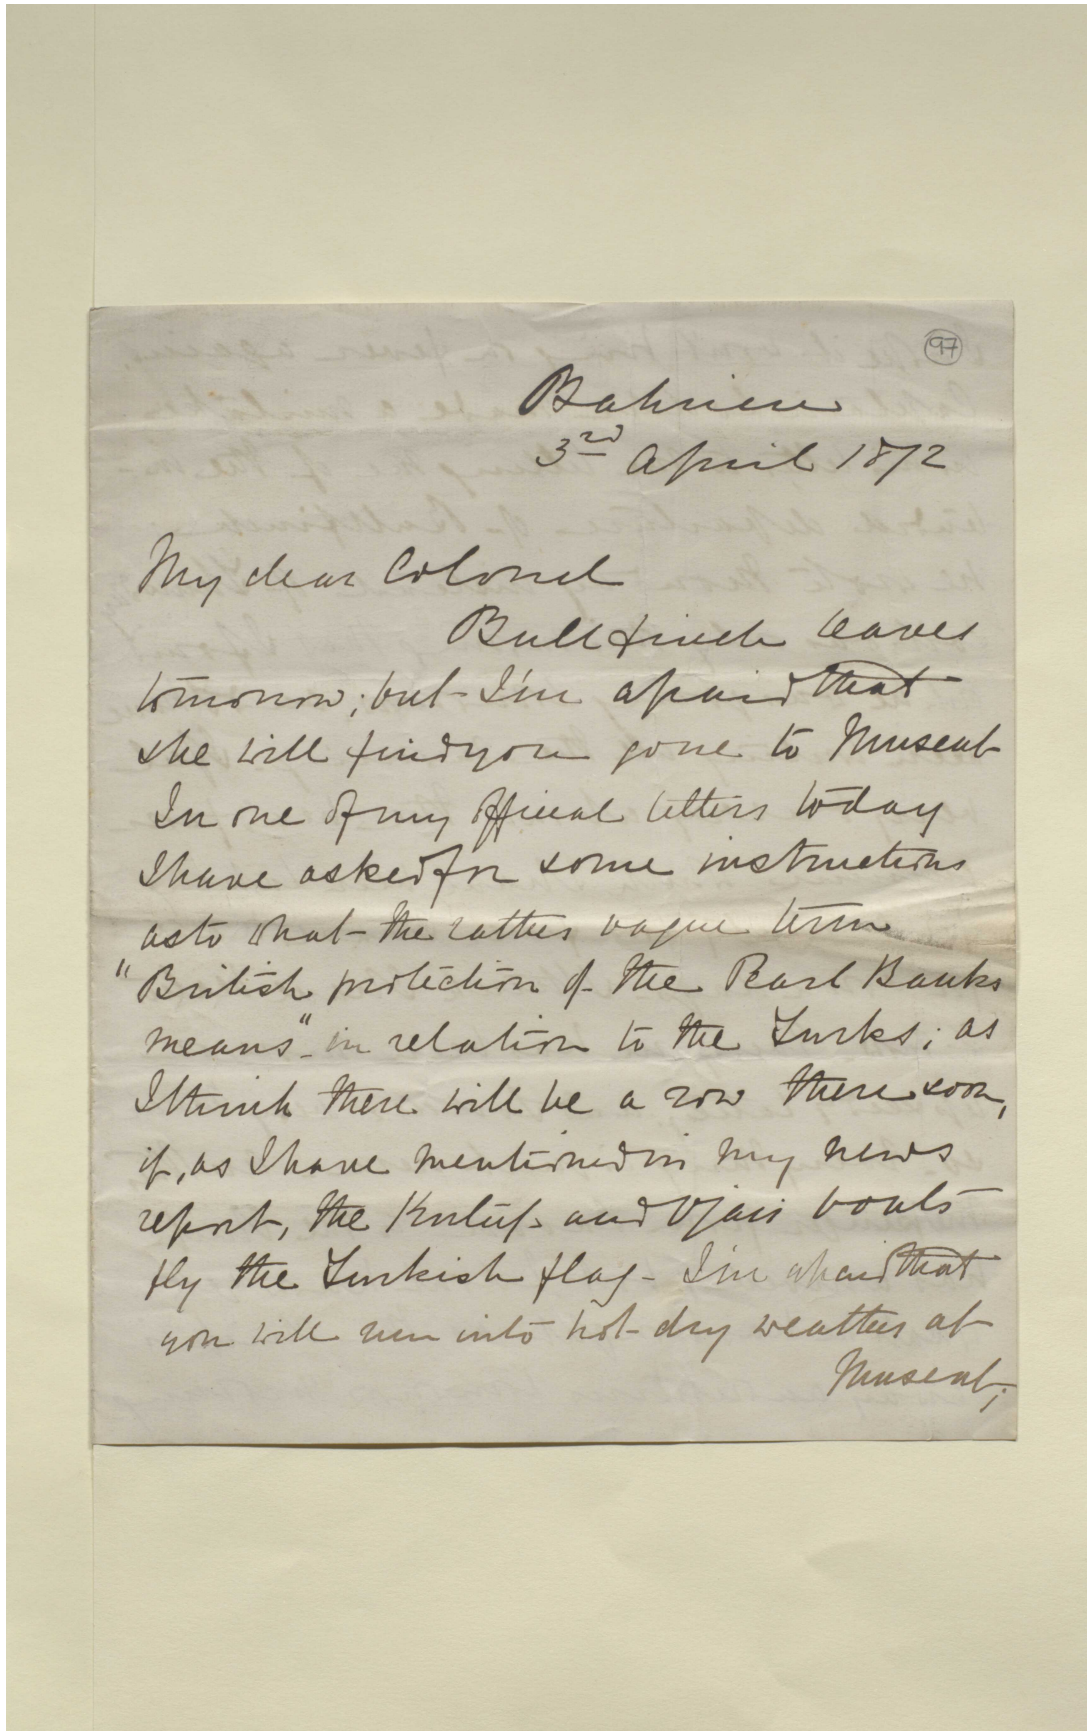 97
Bahrein
3rd April 1872
My dear Colonel
Bullfinch leaves
tomorrow; but I'm afraid that
she will find you gone to Muscat
In one of my official letters today
I have asked for some instructions
as to what the rather vague term
"British protection of the Pearl Banks
means" in relation to the Turks; as
I think there will be a row there soon,
if, as I have mentioned in my news
report, the Kutif and Ojair boats
fly the Turkish flag - I'm afraid that
you will run into hot dry weather at
Muscat;